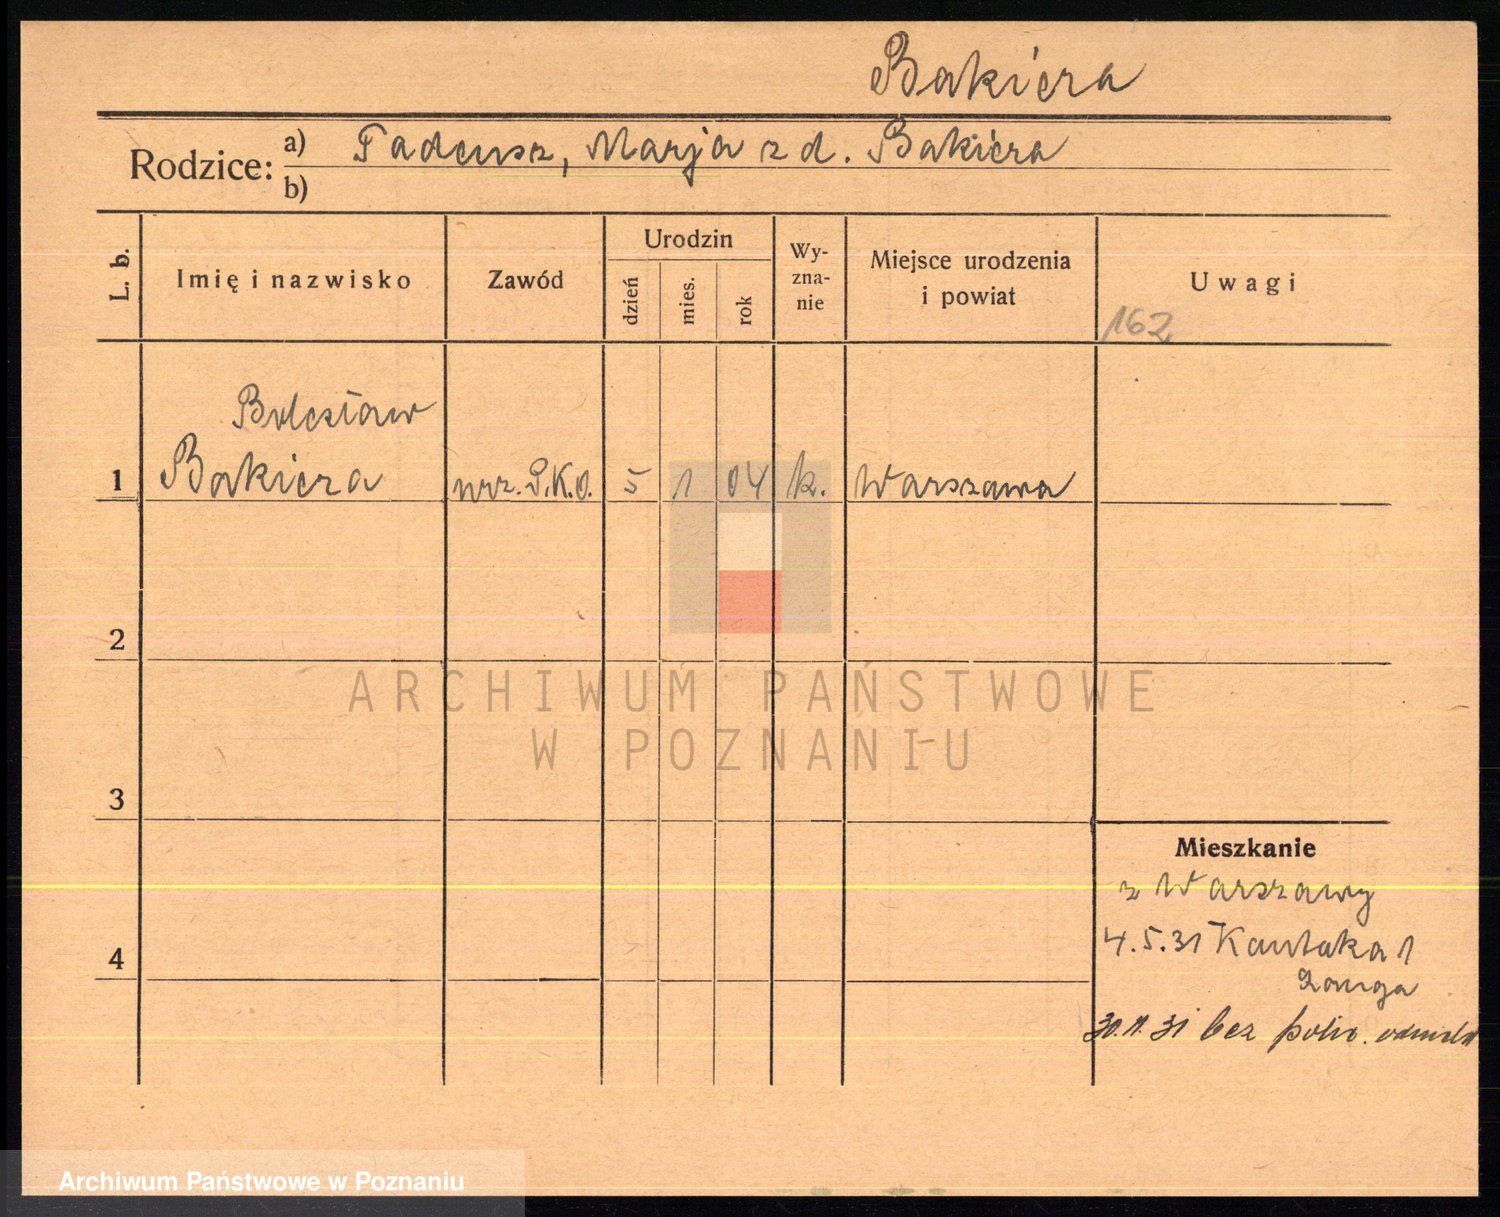 Bakiera
Rodzice:
a) Tadeusz, Marja z d. Bakiera
b)
L. b.
Imię i nazwisko
Zawód
Urodzin
dzień
mies.
rok
Wy-
zna-
nie
Miejsce urodzenia
i powiat
Uwagi
162
Bolesław
1 Bakiera urz. P.K.O. 5 1 04 k. Warszawa
2
3
4
Mieszkanie
z Warszawy
4.5.31 Kantaka 1
30.11.31 bez
ARCHIWUM PAŃSTWOWE
W POZNANIU
Archiwum Państwowe w Poznaniu